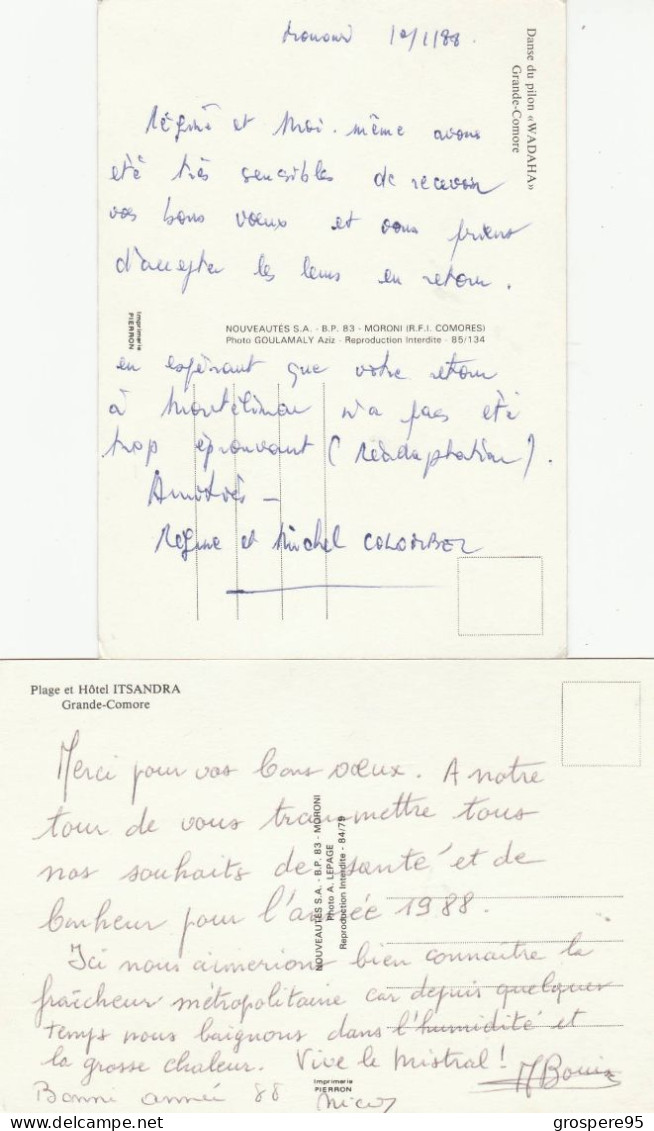 10/1/88.
Danse du pilon «WADAHA»
Grande-Comore
Régine et moi-même avons
été très sensibles de recevoir
vos bons voeux et vous prions
d'accepter les leurs en retour.
Imprimerie
PIERRON
NOUVEAUTÉS S.A. - B.P. 83 - MORONI (R.F.I. COMORES)
Photo GOULAMALY Aziz - Reproduction Interdite - 85/134
en espérant que votre retour
à Montélimar n'a pas été
trop éprouvant (réadaptation).
Amitiés -
Régine et Michel
Plage et Hôtel ITSANDRA
Grande-Comore
Merci pour vos bons voeux. A notre
tour de vous transmettre tous
nos souhaits de santé et de
bonheur pour l'année 1988.
Ici nous aimerions bien connaître la
fraîcheur métropolitaine car depuis quelques
temps nous baignons dans l'humidité et
la grosse chaleur. Vive le Mistral!
Bonne année 88
NOUVEAUTÉS S.A. - B.P. 83 - MORONI
Photo A. LEPAGE
Reproduction Interdite - 84/79
Imprimerie
PIERRON
Delcampe.net
grospere95